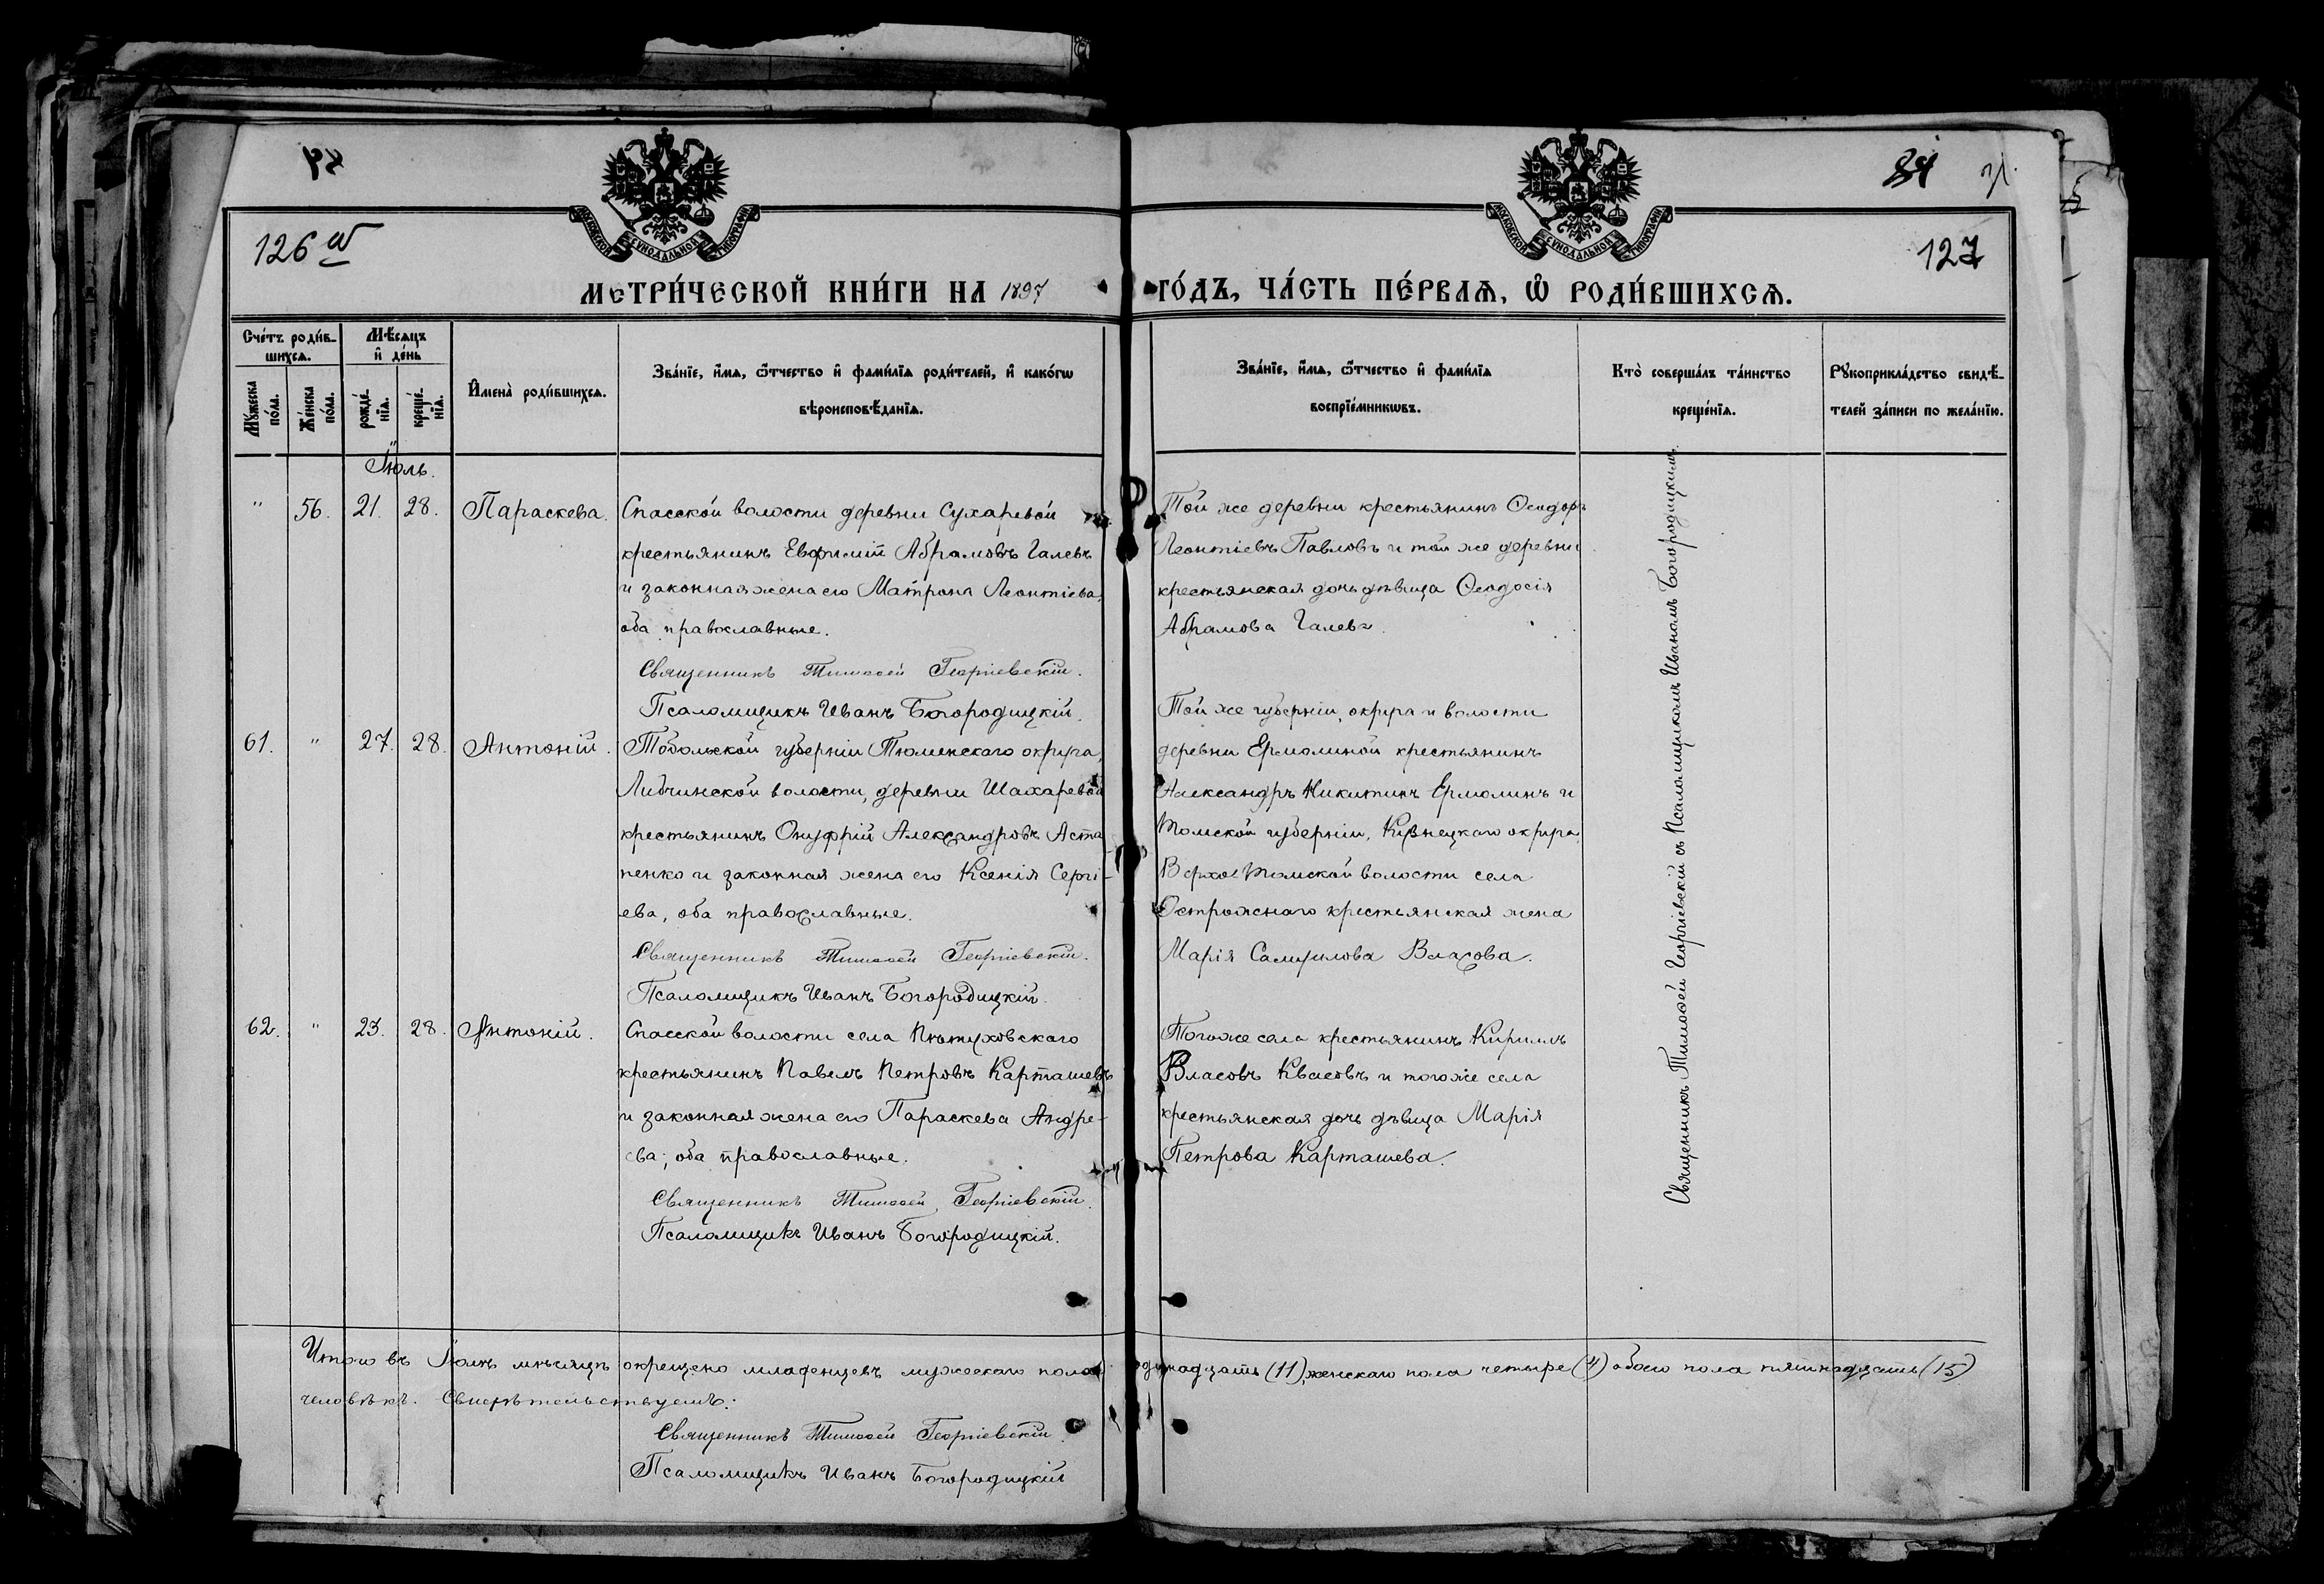 126 об
127
МЕТРИ́ЧЕСКОЙ КНИ́ГИ НА 1897 ГО́ДЪ, ЧА́СТЬ ПЕ́РВАѦ, Ѡ҆ РОДИ́ВШИХСѦ.
МОСКОВСКОЙ СѴНОДАЛЬНОЙ ТИПОГРАФІИ
МОСКОВСКОЙ СѴНОДАЛЬНОЙ ТИПОГРАФІИ
Сче́тъ роди́вшихсѧ.
Мꙋ́жеска по́ла.
Же́нска по́ла.
Мѣ́сѧцъ и҆ де́нь
рожде́нїѧ.
креще́нїѧ.
И҆мена̀ роди́вшихсѧ.
Зва́нїе, и҆́мѧ, ѻ҆́тчество и҆ фами́лїѧ роди́телей, и҆ како́гѡ
вѣроисповѣ́данїѧ.
Зва́нїе, и҆́мѧ, ѻ҆́тчество и҆ фами́лїѧ
воспрїе́мникѡвъ.
Кто̀ соверша́лъ та́инство
креще́нїѧ.
Рꙋкоприкла́дство свидѣ́-
телей за́писи по жела́нїю.
Іюль.
" 56. 21. 28. Параскева.
Спасской волости деревни Сухаревой
крестьянинъ Евфимій Абрамовъ Галевъ
и законная жена его Матрона Леонтіева,
оба православные.
Священникъ Тимоѳей Георгіевскій.
Псаломщикъ Иванъ Богородицкій.
Той же деревни крестьянинъ Ѳеодоръ
Леонтіевъ Павловъ и той же деревни
крестьянская дочь дѣвица Ѳеодосія
Абрамова Галева.
61. " 27. 28. Антоній.
Тобольской губерніи Тюменскаго округа,
Липчинской волости, деревни Шахаревой
крестьянинъ Онуфрій Александровъ Аста
пенко и законная жена его Ксенія Сергі-
ева, оба православные.
Священникъ Тимоѳей Георгіевскій.
Псаломщикъ Иванъ Богородицкій.
Той же губерніи, округа и волости
деревни Ермолиной крестьянинъ
Александръ Никитинъ Ермолинъ и
Томской губерніи, Кузнецкаго округа,
Верхо-Томской волости села
Острожнаго крестьянская жена
Марія Самуилова Власова.
62. " 23. 28. Антоній.
Спасской волости села Пѣтуховскаго
крестьянинъ Павелъ Петровъ Карташевъ
и законная жена его Параскева Андре-
ева; оба православные.
Священникъ Тимоѳей Георгіевскій.
Псаломщикъ Иванъ Богородицкій.
Того же села крестьянинъ Кириллъ
Власовъ Квасовъ и того же села
крестьянская дочь дѣвица Марія
Петрова Карташева.
Священникъ Тимоѳей Георгіевскій съ Псаломщикомъ Иваномъ Богородицкимъ.
Итого въ Іюлѣ мѣсяцѣ окрещено младенцевъ мужескаго пола одинадцать (11), женскаго пола четыре (4) обоего пола пятнадцать (15)
человѣкъ. Свидѣтельствуемъ:
Священникъ Тимоѳей Георгіевскій.
Псаломщикъ Иванъ Богородицкій